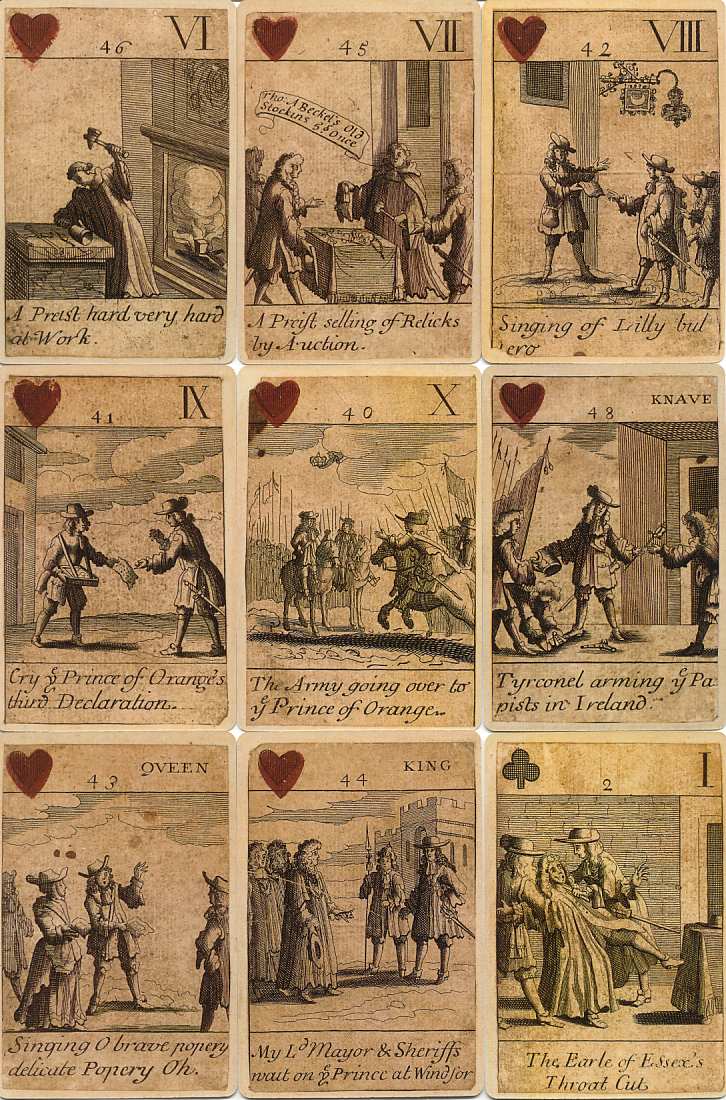 46 VI
A Preist hard very hard
at Work.
45 VII
Tho: A Becket's Old
Stockins 5s Once
A Preist selling of Relicks
by Auction.
42 VIII
Singing of Lilly bul
lero
41 IX
Cry yᵉ Prince of Orange's
third Declaration.
40 X
The Army going over to
yᵉ Prince of Orange.
48 KNAVE
Tyrconel arming yᵉ Pa
pists in Ireland.
43 QVEEN
Singing O brave popery
delicate Popery Oh.
44 KING
My Lᵈ Mayor & Sheriffs
wait on yᵉ Prince at Windsor
2 I
The Earle of Essex's
Throat Cut